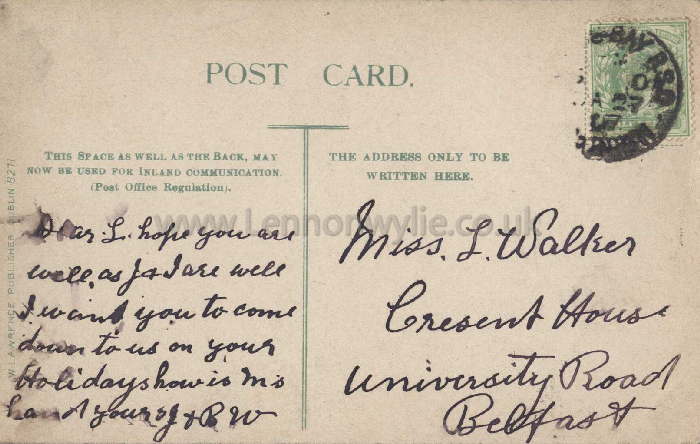 POST CARD.
THIS SPACE AS WELL AS THE BACK, MAY
NOW BE USED FOR INLAND COMMUNICATION.
(Post Office Regulation).
THE ADDRESS ONLY TO BE
WRITTEN HERE.
W. LAWRENCE, PUBLISHER, DUBLIN 8271
www.Lennonwylie.co.uk
Dear L. hope you are
well, as J & I are well
I want you to come
down to us on your
Holidays how is Ms
hand yours J & B W
Miss. L. Walker
Cresent House
University Road
Belfast